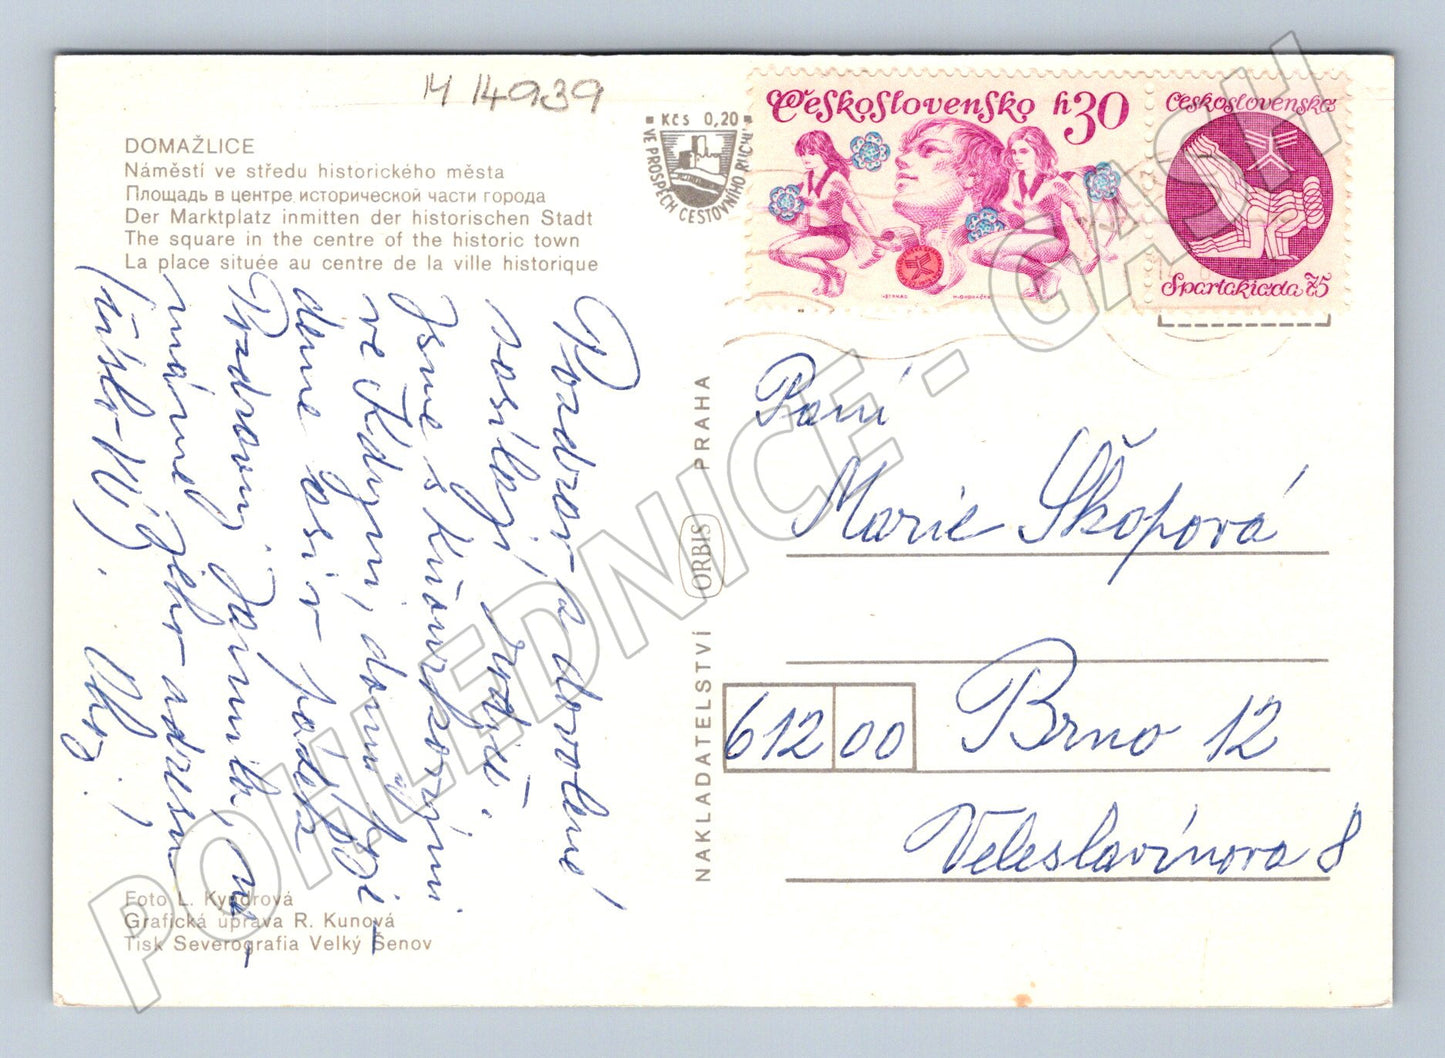 M 14939
DOMAŽLICE
Náměstí ve středu historického města
Площадь в центре исторической части города
Der Marktplatz inmitten der historischen Stadt
The square in the centre of the historic town
La place située au centre de la ville historique
Kčs 0,20
VE PROSPĚCH CESTOVNÍHO RUCHU
Československo h30
Československo
Spartakiada 75
Pozdrav z dovolené
posílají
Jsme s
ve Kdyni, domů
deme asi v pátek
Pozdravuj
adresu
Foto L. Kyndrová
Grafická úprava R. Kunová
Tisk Severografia Velký Šenov
NAKLADATELSTVÍ ORBIS PRAHA
Paní
Marie Škopová
612 00 Brno 12
Veleslavínova 8
POHLEDNICE - GASH